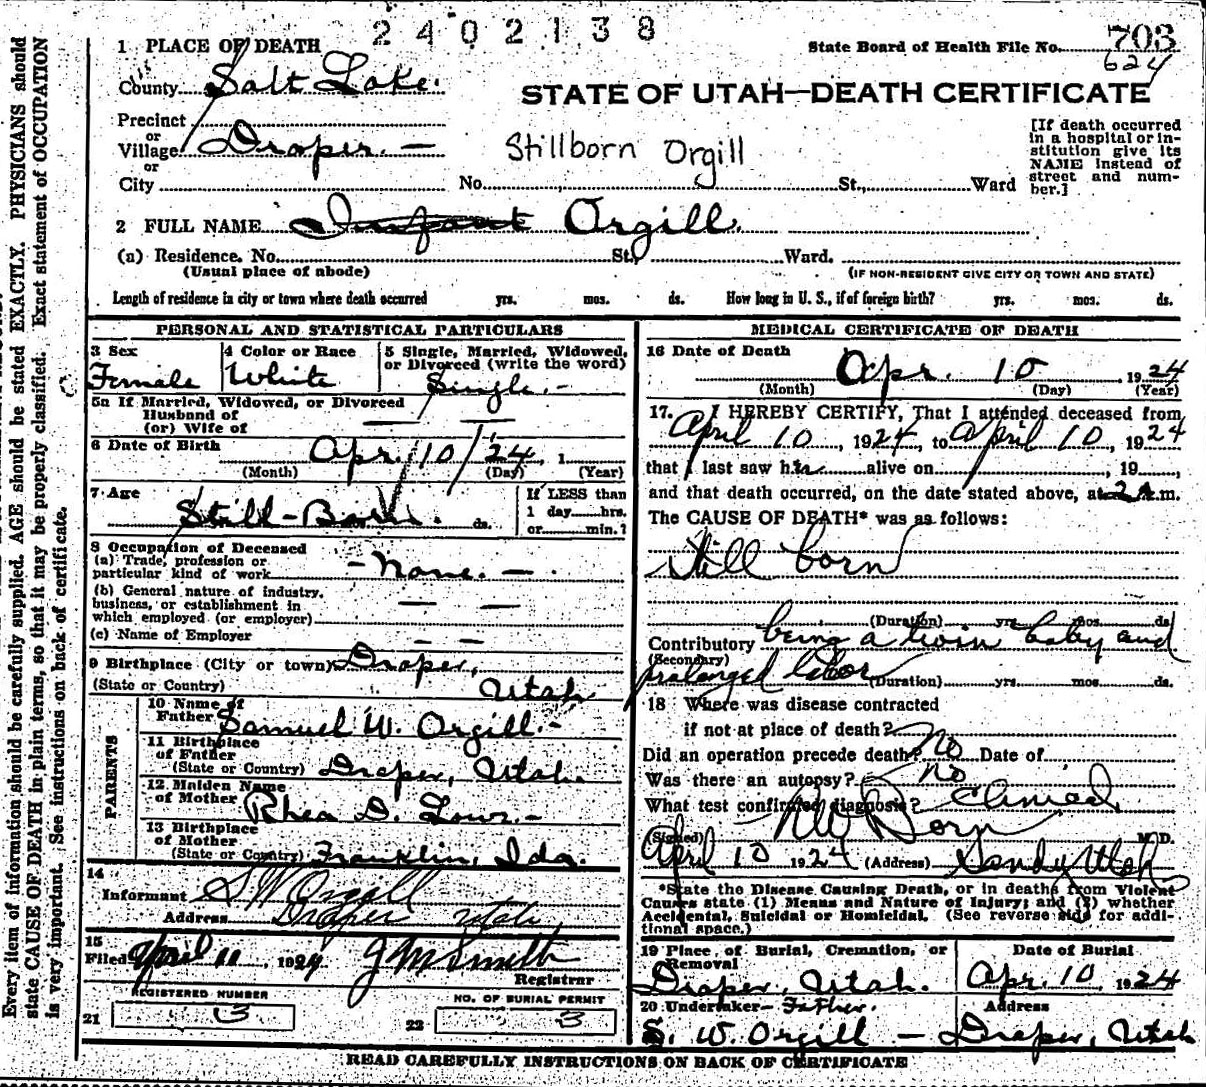 2402138
State Board of Health File No. 703
624
1 PLACE OF DEATH
County Salt Lake.
STATE OF UTAH—DEATH CERTIFICATE
Precinct
or
Village Draper. —
or
City No. St., Ward
Stillborn Orgill
[If death occurred
in a hospital or in-
stitution give its
NAME instead of
street and num-
ber.]
2 FULL NAME Infant Orgill.
(a) Residence. No. St., Ward.
(Usual place of abode)
(IF NON-RESIDENT GIVE CITY OR TOWN AND STATE)
Length of residence in city or town where death occurred yrs. mos. ds. How long in U. S., if of foreign birth? yrs. mos. ds.
PERSONAL AND STATISTICAL PARTICULARS
3 Sex
Female
4 Color or Race
White
5 Single, Married, Widowed,
or Divorced (write the word)
Single. -
5a If Married, Widowed, or Divorced
Husband of
(or) Wife of — —
6 Date of Birth Apr/10/24, 1
(Month) (Day) (Year)
7 Age
Still-Born. ds.
If LESS than
1 day hrs.
or min.?
8 Occupation of Deceased
(a) Trade, profession or
particular kind of work - None. -
(b) General nature of industry,
business, or establishment in
which employed (or employer) — —
(c) Name of Employer — —
9 Birthplace (City or town) Draper,
(State or Country) Utah
PARENTS
10 Name of
Father Samuel W. Orgill. -
11 Birthplace
of Father
(State or Country) Draper, Utah.
12 Maiden Name
of Mother Rhea D.
13 Birthplace
of Mother
(State or Country) Franklin, Ida.
14
Informant S W Orgill
Address Draper Utah
15
Filed April 11, 1924 J M Smith
Registrar
REGISTERED NUMBER
21 3
NO. OF BURIAL PERMIT
22 3
MEDICAL CERTIFICATE OF DEATH
16 Date of Death
Apr. 10, 1924
(Month) (Day) (Year)
17. I HEREBY CERTIFY, That I attended deceased from
April 10, 1924, to April 10, 1924
that I last saw her alive on , 19 ,
and that death occurred, on the date stated above, at 2 A.m.
The CAUSE OF DEATH* was as follows:
Still born
(Duration) yrs. mos. ds.
Contributory being a twin baby and
(Secondary)
prolonged labor (Duration) yrs. mos. ds.
18 Where was disease contracted
if not at place of death?
Did an operation precede death? No Date of
Was there an autopsy? No
What test confirmed diagnosis? Clinical
(Signed) M. D.
April 10 1924 (Address) Sandy Utah
*State the Disease Causing Death, or in deaths from Violent
Causes state (1) Means and Nature of Injury; and (2) whether
Accidental, Suicidal or Homicidal. (See reverse side for addi-
tional space.)
19 Place of Burial, Cremation, or
Removal
Draper, Utah.
Date of Burial
Apr. 10, 1924
20 Undertaker - Father.
S. W. Orgill —
Address
Draper, Utah
READ CAREFULLY INSTRUCTIONS ON BACK OF CERTIFICATE
Every item of information should be carefully supplied. AGE should be stated EXACTLY. PHYSICIANS should
state CAUSE OF DEATH in plain terms, so that it may be properly classified. Exact statement of OCCUPATION
is very important. See instructions on back of certificate.